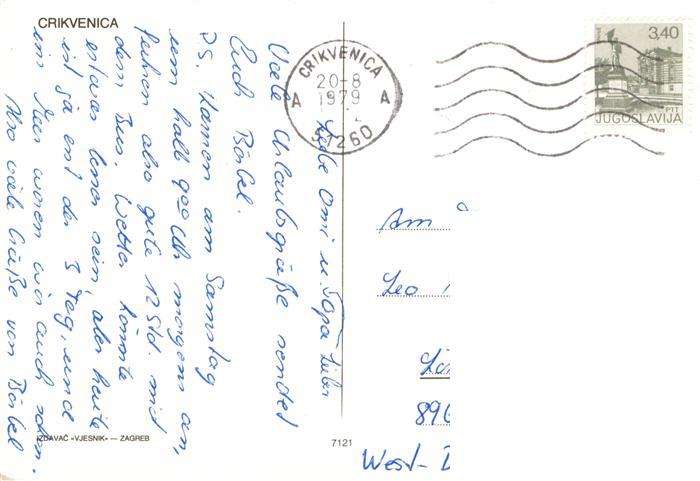 CRIKVENICA
Liebe Omi u. Opa Lieber
Viele Urlaubsgrüße sendet
Euch Bärbel.
PS. Kamen am Samstag
um halb 9ºº Uhr morgens an,
fuhren also gute 12 Std. mit
dem Bus. Wetter könnte
etwas besser sein, aber heute
ist ja erst der 3 Tag, und
im Meer waren wir auch schon.
Also viele Grüße von Bärbel
CRIKVENICA
20-8
1979
A A
51260
3,40
PTT
JUGOSLAVIJA
Am
Leo
896
West-
IZDAVAČ «VJESNIK» — ZAGREB
7121